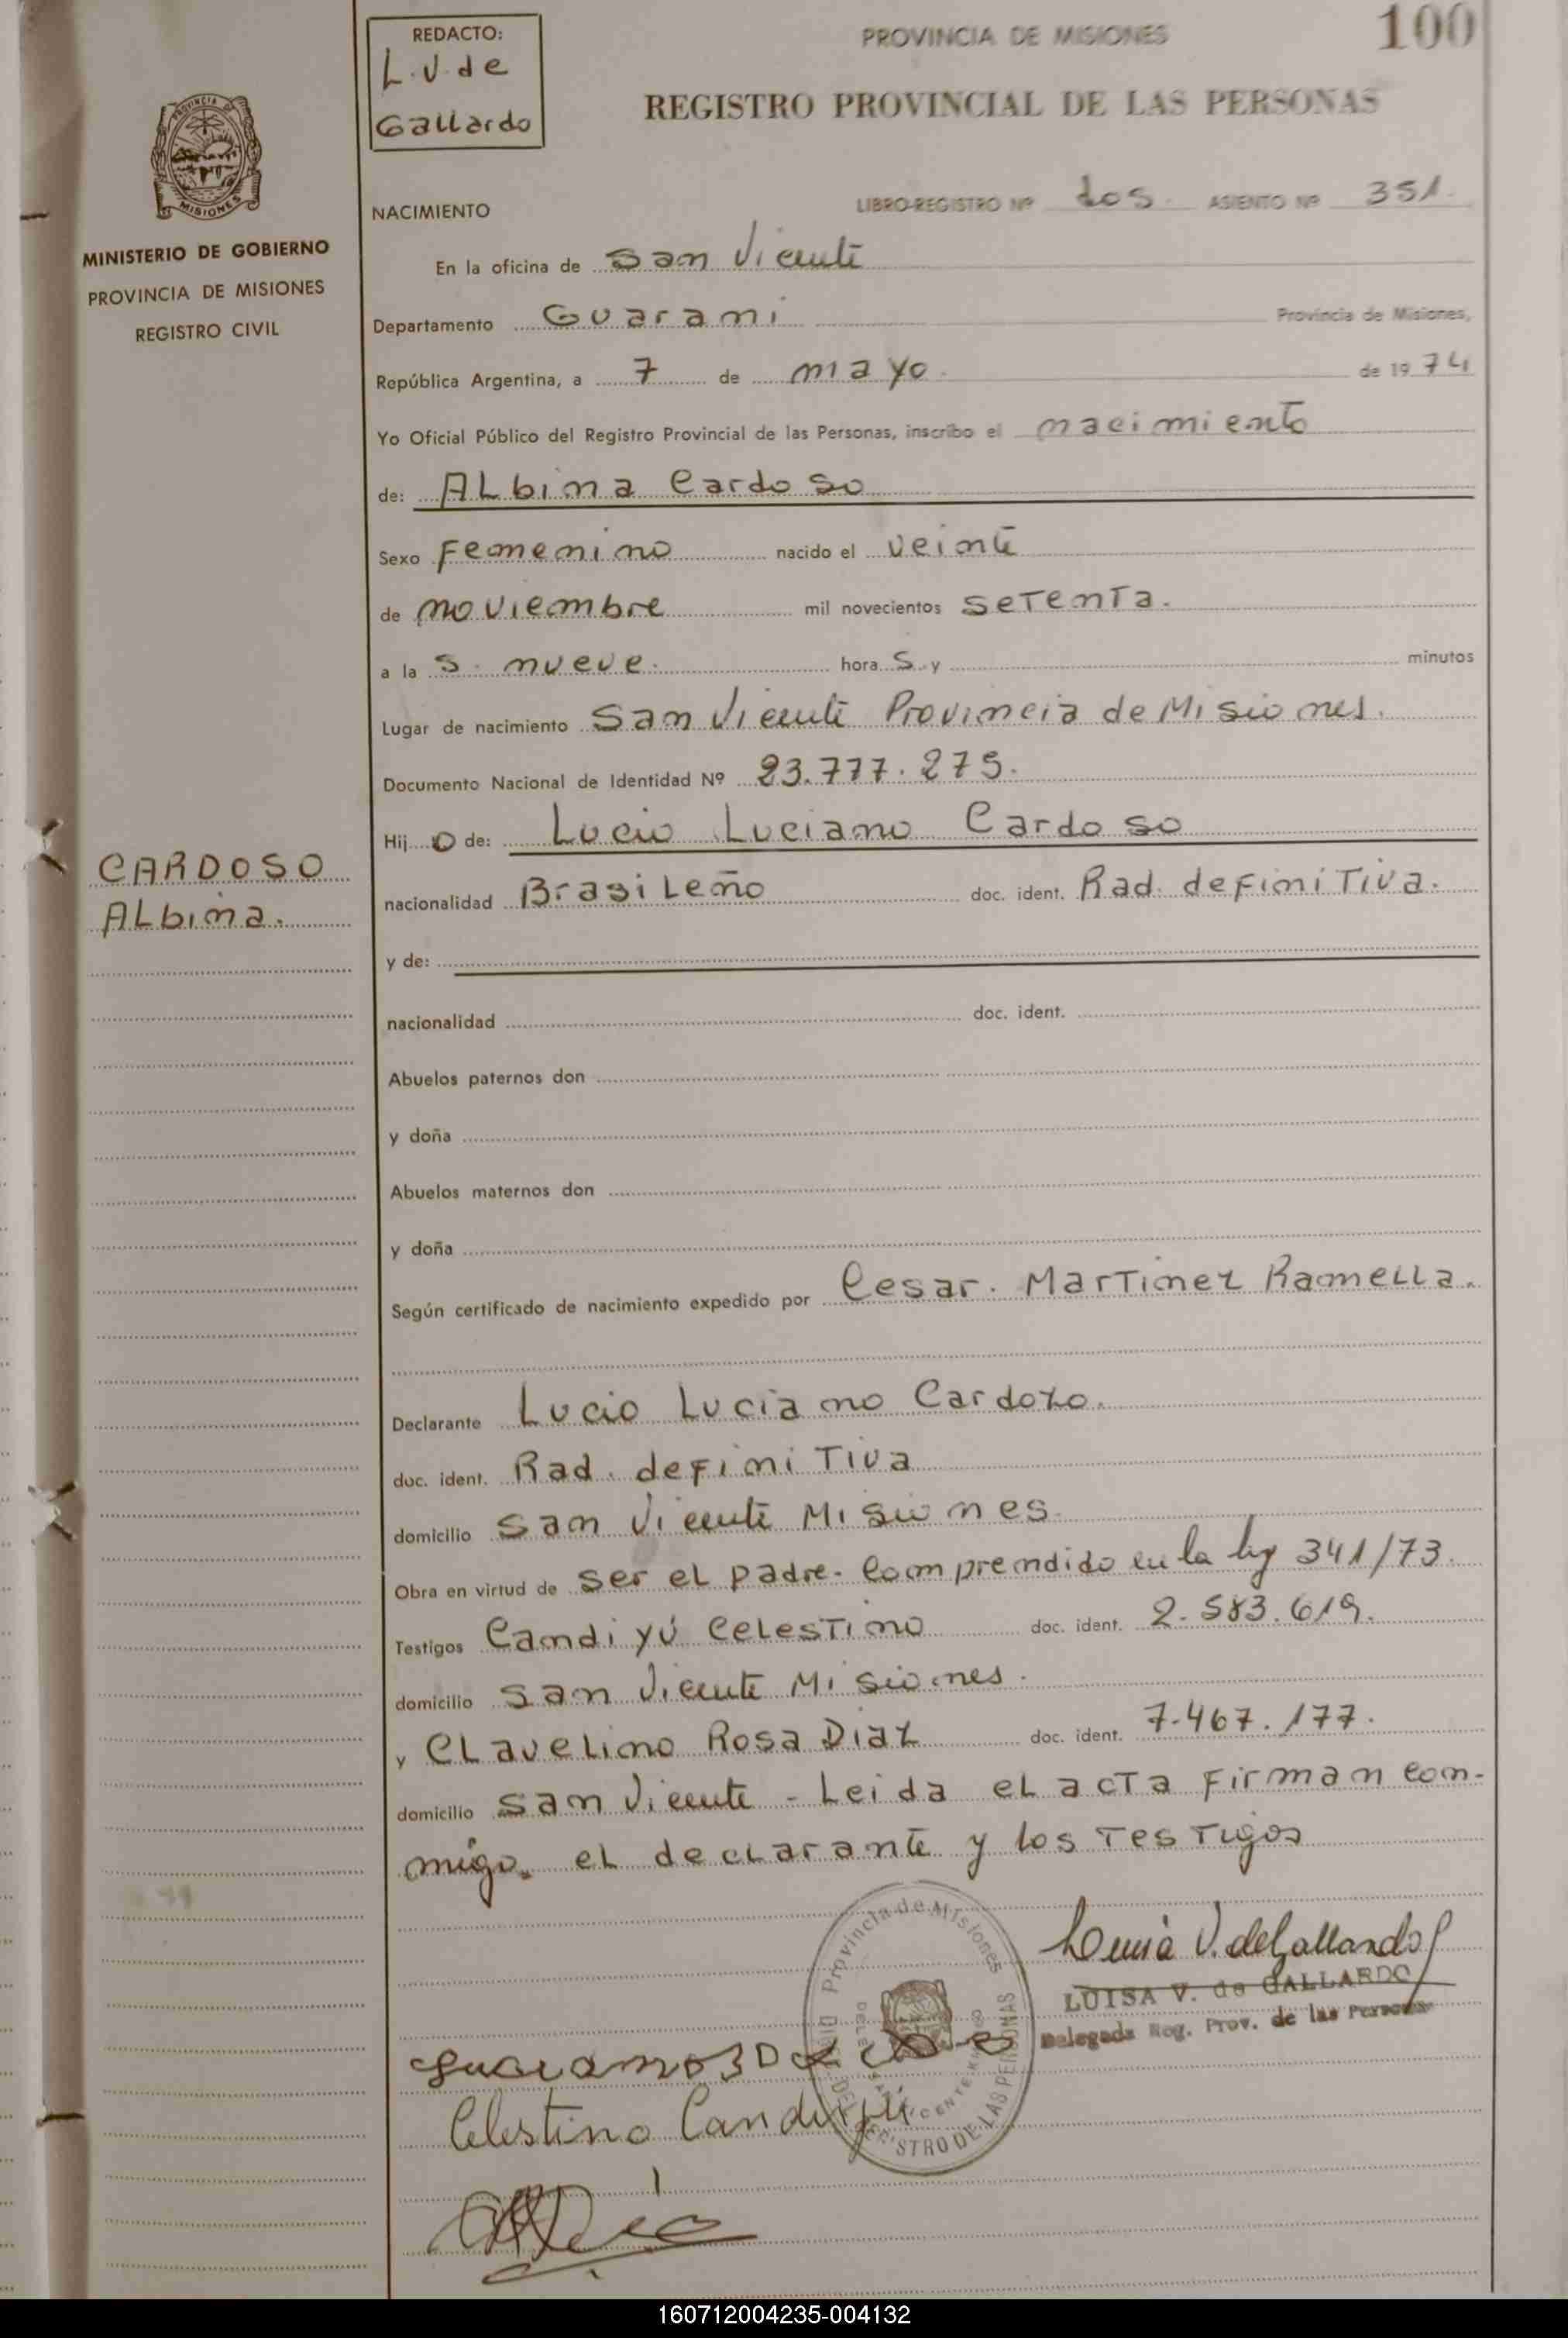 REDACTO:
L.V. de
Gallardo
PROVINCIA DE MISIONES
100
REGISTRO PROVINCIAL DE LAS PERSONAS
PROVINCIA DE
MISIONES
MINISTERIO DE GOBIERNO
PROVINCIA DE MISIONES
REGISTRO CIVIL
NACIMIENTO LIBRO-REGISTRO Nº dos. ASIENTO Nº 351.
En la oficina de San Vicente
Departamento Guarani Provincia de Misiones,
República Argentina, a 7 de mayo. de 1974
Yo Oficial Público del Registro Provincial de las Personas, inscribo el nacimiento
de: ALbina Cardoso
Sexo Femenino nacido el veinte
de noviembre mil novecientos setenta.
a la s. nueve. hora s. y minutos
Lugar de nacimiento San Vicente Provincia de Misiones.
Documento Nacional de Identidad Nº 23.777.275.
Hij o de: Lucio Luciano Cardoso
CARDOSO
ALbina.
nacionalidad BrasiLeño doc. ident. Rad. definitiva.
y de:
nacionalidad doc. ident.
Abuelos paternos don
y doña
Abuelos maternos don
y doña
Según certificado de nacimiento expedido por Cesar. Martinez Ramella.
Declarante Lucio Luciano Cardozo.
doc. ident. Rad. definitiva
domicilio San Vicente Misiones.
Obra en virtud de ser el padre. Comprendido en la ley 341/73.
Testigos Candiyú Celestino doc. ident. 2.583.619.
domicilio San Vicente Misiones.
y Clavelino Rosa Diaz doc. ident. 7.467.177.
domicilio San Vicente - Leida el acta firman con-
migo. el declarante y los testigos
Provincia de Misiones
REGISTRO DE LAS PERSONAS
Luisa V. de Gallardo
LUISA V. de GALLARDO
Delegada Reg. Prov. de las Personas
Celestino Candiyú
160712004235-004132